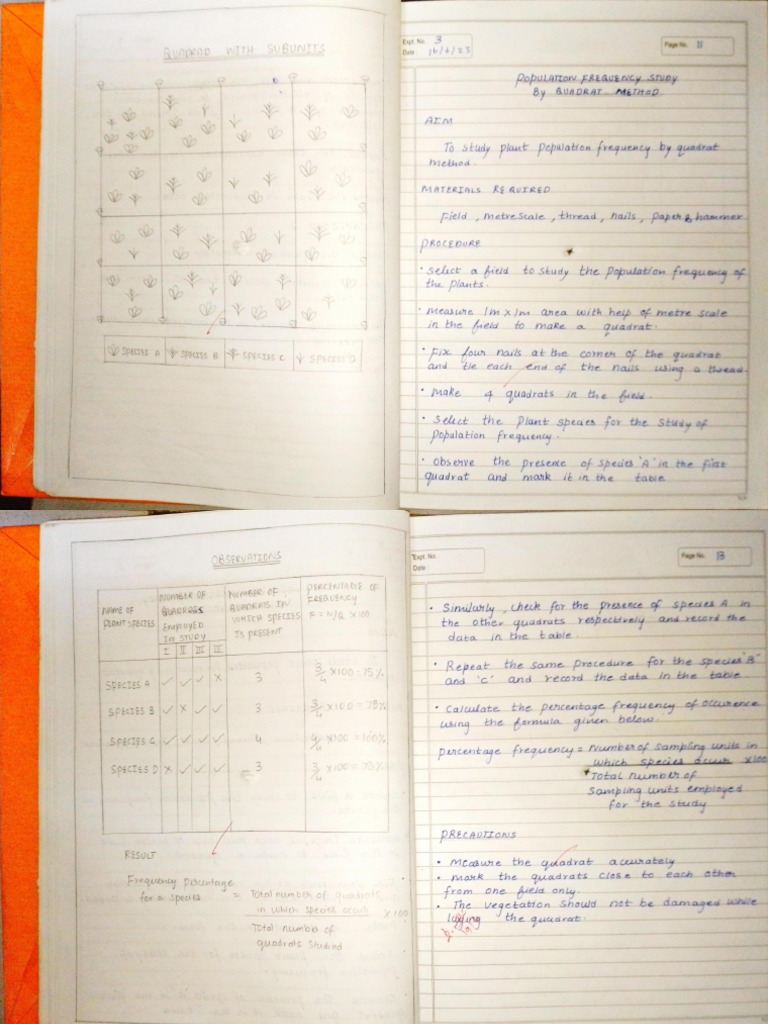 QUADRAD WITH SUBUNITS
SPECIES A
SPECIES B
SPECIES C
SPECIES D
Expt. No. 3
Date 16/6/23
Page No. 11
POPULATION FREQUENCY STUDY
By QUADRAT METHOD
AIM
To study plant population frequency by quadrat
method.
MATERIALS REQUIRED
Field, metre scale, thread, nails, paper & hammer
PROCEDURE
• Select a field to study the population frequency of
the plants.
• Measure 1m x 1m area with help of metre scale
in the field to make a quadrat.
• Fix four nails at the corner of the quadrat
and tie each end of the nails using a thread.
• Make 4 quadrats in the field.
• Select the plant species for the study of
population frequency.
• Observe the presence of species 'A' in the first
quadrat and mark it in the table
OBSERVATIONS
NAME OF
PLANT SPECIES
NUMBER OF
QUADRATS
EMPLOYED
IN STUDY
I II III IV
NUMBER OF
QUADRATS IN
WHICH SPECIES
IS PRESENT
PERCENTAGE OF
FREQUENCY
F = N/Q X100
SPECIES A ✓ ✓ ✓ x 3 3/4 x100 = 75%
SPECIES B ✓ x ✓ ✓ 3 3/4 x100 = 75%
SPECIES C ✓ ✓ ✓ ✓ 4 4/4 x100 = 100%
SPECIES D x ✓ ✓ ✓ 3 3/4 x100 = 75%
RESULT
Frequency percentage
for a species = Total number of quadrats
in which species occur x 100
Total number of
quadrats studied
Expt. No.
Date
Page No. 13
• Similarly, check for the presence of species A in
the other quadrats respectively and record the
data in the table.
• Repeat the same procedure for the species "B"
and 'c' and record the data in the table.
• Calculate the percentage frequency of occurence
using the formula given below.
percentage frequency = Number of sampling units in
which species occur x100
Total number of
sampling units employed
for the study
PRECAUTIONS
• Measure the quadrat accurately
• Mark the quadrats close to each other
from one field only.
• The vegetation should not be damaged while
laying the quadrat.